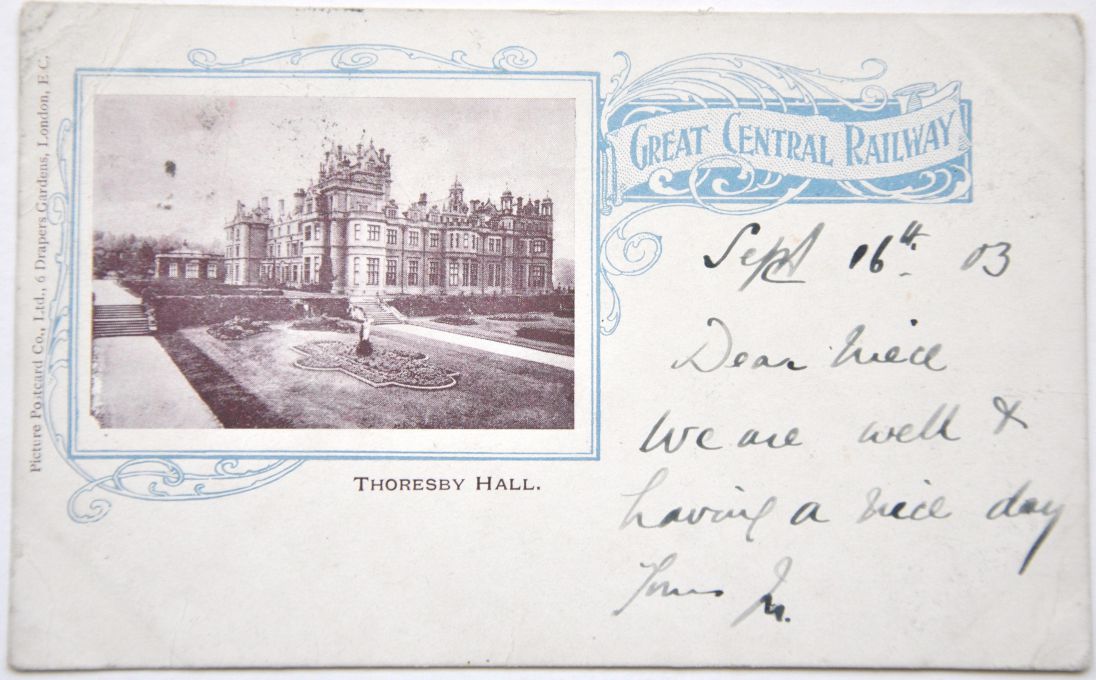 Picture Postcard Co., Ltd., 6 Drapers Gardens, London, E.C.
GREAT CENTRAL RAILWAY
Sept 16th 03
Dear Niece
We are well &
having a nice day
Yours
THORESBY HALL.